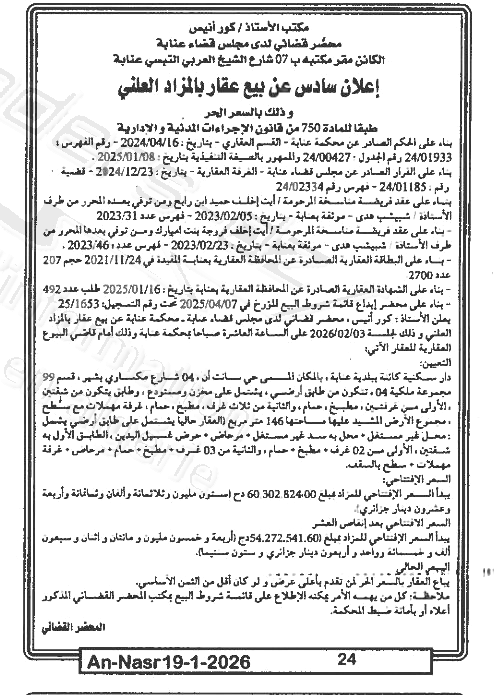 مكتب الأستاذ / كور أنيس
محضر قضائي لدى مجلس قضاء عنابة
الكائن مقر مكتبه ب 07 شارع الشيخ العربي التبسي عنابة
إعلان سادس عن بيع عقار بالمزاد العلني
و ذلك بالسعر الحر
طبقا للمادة 750 من قانون الإجراءات المدنية و الإدارية
بناء على الحكم الصادر عن محكمة عنابة - القسم العقاري - بتاريخ : 2024/04/16 - رقم الفهرس :
24/01933 - رقم الجدول : 24/00427 والممهور بالصيغة التنفيذية بتاريخ : 2025/01/08 .
بناء على القرار الصادر عن مجلس قضاء عنابة - الغرفة العقارية - بتاريخ : 2024/12/23 - قضية
رقم : 24/01185 - فهرس رقم 24/02334
بناء على عقد فريضة مناسخة المرحومة / أيت إخلف حميد ابن رابح ومن توفي بعده المحرر من طرف
الأستاذة / شبيشب هدى - موثقة بعنابة - بتاريخ : 2023/02/05 - فهرس عدد 2023/31
- بناء على عقد فريضة مناسخة المرحومة / أيت إخلف فروجة بنت امبارك ومن توفي بعدها المحرر من
طرف الأستاذة / شبيشب هدى - موثقة بعنابة - بتاريخ : 2023/02/23 - فهرس عدد : 2023/46 .
- بناء على البطاقة العقارية الصادرة عن المحافظة العقارية بعنابة المقيدة في 2021/11/24 حجم 207
عدد 2700
- بناء على الشهادة العقارية الصادرة عن المحافظة العقارية بعنابة بتاريخ : 2025/01/16 طلب عدد 492
- بناء على محضر إيداع قائمة شروط البيع المؤرخ في 2025/04/07 تحت رقم التسجيل: 25/1653
يعلن الأستاذ : كور أنيس ، محضر قضائي لدى مجلس قضاء عنابة - محكمة عنابة عن بيع عقار بالمزاد
العلني و ذلك لجلسة 2026/02/03 على الساعة العاشرة صباحا بمحكمة عنابة وذلك أمام قاضي البيوع
العقارية للعقار الآتي:
التعيين:
دار سكنية كائنة ببلدية عنابة ، بالمكان المسمى حي سانت أن ، 04 شارع مكساري بشير ، قسم 99
مجموعة ملكية 04 ، تتكون من طابق أرضي ، يشتمل على مخزن ومستودع ، وطابق يتكون من شقتين
، الأولى من غرفتين ، مطبخ ، حمام ، والثانية من ثلاث غرف، مطبخ ، حمام ، غرفة مهملات مع سطح
، مجموع الأرض المشيد عليها مساحتها 146 متر مربع (العقار حاليا يشتمل على طابق أرضي يشمل
: محل غير مستغل + محل به سد غير مستغل + مرحاض + حوض غسيل اليدين ، الطابق الأول به
شقتين ، الأولى من 02 غرف + مطبخ + حمام ، والثانية من 03 غرف + مطبخ + حمام + مرحاض + غرفة
مهملات + سطح بالسقف.
السعر الإفتتاحي:
يبدأ السعر الإفتتاحي للمزاد بمبلغ 60.302.824.00 دج (ستون مليون وثلاثمائة وألفان وثمانمائة وأربعة
وعشرون دينار جزائري).
السعر الافتتاحي بعد إنقاص العشر
يبدأ السعر الإفتتاحي للمزاد بمبلغ (54.272.541.60دج (أربعة و خمسون مليون و مائتان و إثنان و سبعون
ألف و خمسمائة وواحد و أربعون دينار جزائري و ستون سنتيما).
السعر الحالي
يباع العقار بالسعر الحر لمن تقدم بأعلى عرض و لو كان أقل من الثمن الأساسي.
ملاحظة: كل من يهمه الأمر يمكنه الإطلاع على قائمة شروط البيع بمكتب المحضر القضائي المذكور
أعلاه أو بأمانة ضبط المحكمة.
المحضر القضائي
An-Nasr 19-1-2026
24